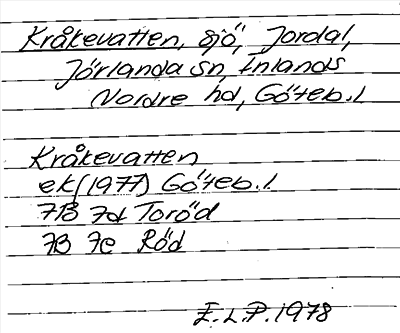 Kråkevatten, sjö, Jordal,
Jörlanda sn, Inlands
Nordre hd, Göteb. l
Kråkevatten
ek (1977) Göteb. l.
7B 7d Toröd
7B 7e Röd
E.L.P. 1978